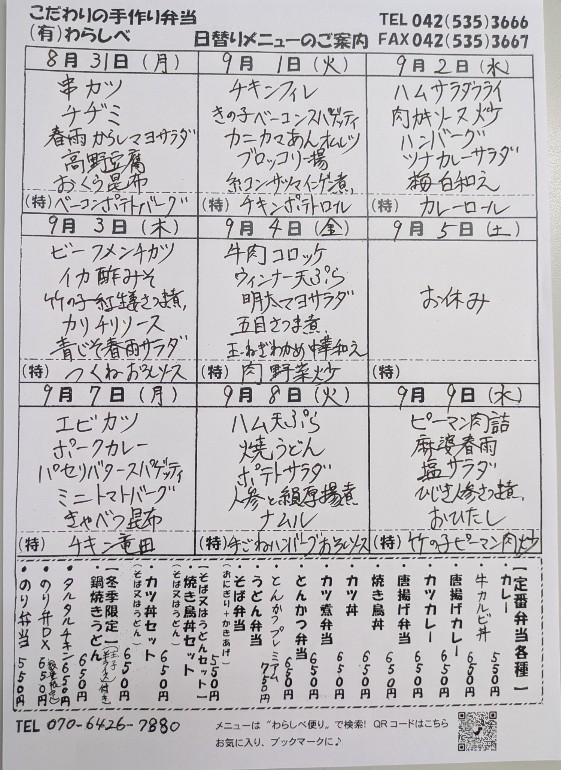 こだわりの手作り弁当
(有)わらしべ
日替りメニューのご案内
TEL 042(535)3666
FAX 042(535)3667
8月31日(月)
串カツ
チヂミ
春雨からしマヨサラダ
高野豆腐
おくら昆布
(特)ベーコンポテトバーグ
9月1日(火)
チキンフィレ
きの子ベーコンスパゲッティ
カニカマあんオムレツ
ブロッコリー揚
糸コンサツマインゲン煮
(特)チキンポテトロール
9月2日(水)
ハムサラダフライ
肉ソース炒
ハンバーグ
ツナカレーサラダ
梅白和え
(特)カレーロール
9月3日(木)
ビーフメンチカツ
イカ酢みそ
竹の子紅生姜さつま煮
カリチリソース
青じそ春雨サラダ
(特)つくねおろしソース
9月4日(金)
牛肉コロッケ
ウィンナー天ぷら
明太マヨサラダ
五目さつま煮
玉ねぎわかめ中華和え
(特)肉野菜炒
9月5日(土)
お休み
(特)
9月7日(月)
エビカツ
ポークカレー
パセリバタースパゲッティ
ミニトマトバーグ
きゃべつ昆布
(特)チキン竜田
9月8日(火)
ハム天ぷら
焼うどん
ポテトサラダ
人参と絹厚揚煮
ナムル
(特)手ごねハンバーグおろしソース
9月9日(水)
ピーマン肉詰
麻婆春雨
塩サラダ
ひじき人参さつま煮
おひたし
(特)竹の子ピーマン肉炒
【定番弁当各種】
・カレー 550円
・牛カルビ丼 650円
・唐揚げカレー 650円
・カツカレー 650円
・唐揚げ弁当 650円
・焼き鳥丼 650円
・カツ丼 650円
・カツ煮弁当 650円
・とんかつ弁当 650円
・とんかつプレミアム 750円
・うどん弁当
・そば弁当
(おにぎり+かきあげ) 550円
【そば又はうどんセット】
・焼き鳥丼セット
(そば又はうどん) 650円
・カツ丼セット
(そば又はうどん) 650円
【冬季限定】
鍋焼きうどん 650円
・タルタルチキン 650円
・のり弁DX 650円
・のり弁当 550円
TEL 070-6426-7880
メニューは“わらしべ便り”で検索! QRコードはこちら
お気に入り、ブックマークに♪